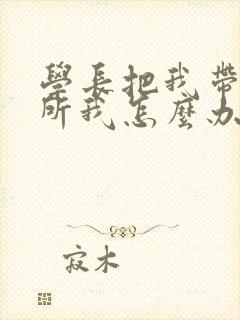 學長把我帶
所我怎麼办
寂木